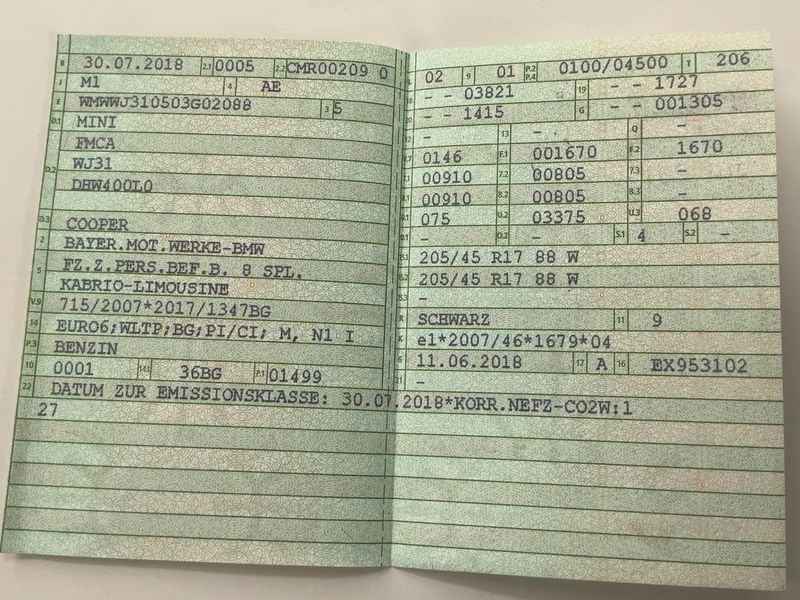 B 30.07.2018 2.1 0005 2.2 CMR00209 0
J M1 4 AE
E WMWWJ310503G02088 3 5
D.1 MINI
FMCA
D.2 WJ31
DHW400L0
D.3 COOPER
2 BAYER.MOT.WERKE-BMW
5 FZ.Z.PERS.BEF.B. 8 SPL.
KABRIO-LIMOUSINE
V.9 715/2007*2017/1347BG
14 EURO6;WLTP;BG;PI/CI; M, N1 I
P.3 BENZIN
10 0001 14.1 36BG P.1 01499
22 DATUM ZUR EMISSIONSKLASSE: 30.07.2018*KORR.NEFZ-CO2W:1
27
02 9 01 P.2 P.4 0100/04500 T 206
18 - - 03821 19 - - 1727
20 - - 1415 G - - 001305
- 13 - Q -
0146 F.1 001670 F.2 1670
00910 7.2 00805 7.3 -
00910 8.2 00805 8.3 -
075 U.2 03375 U.3 068
- O.2 - S.1 4 S.2 -
205/45 R17 88 W
205/45 R17 88 W
-
R SCHWARZ 11 9
K e1*2007/46*1679*04
6 11.06.2018 17 A 16 EX953102
21 -